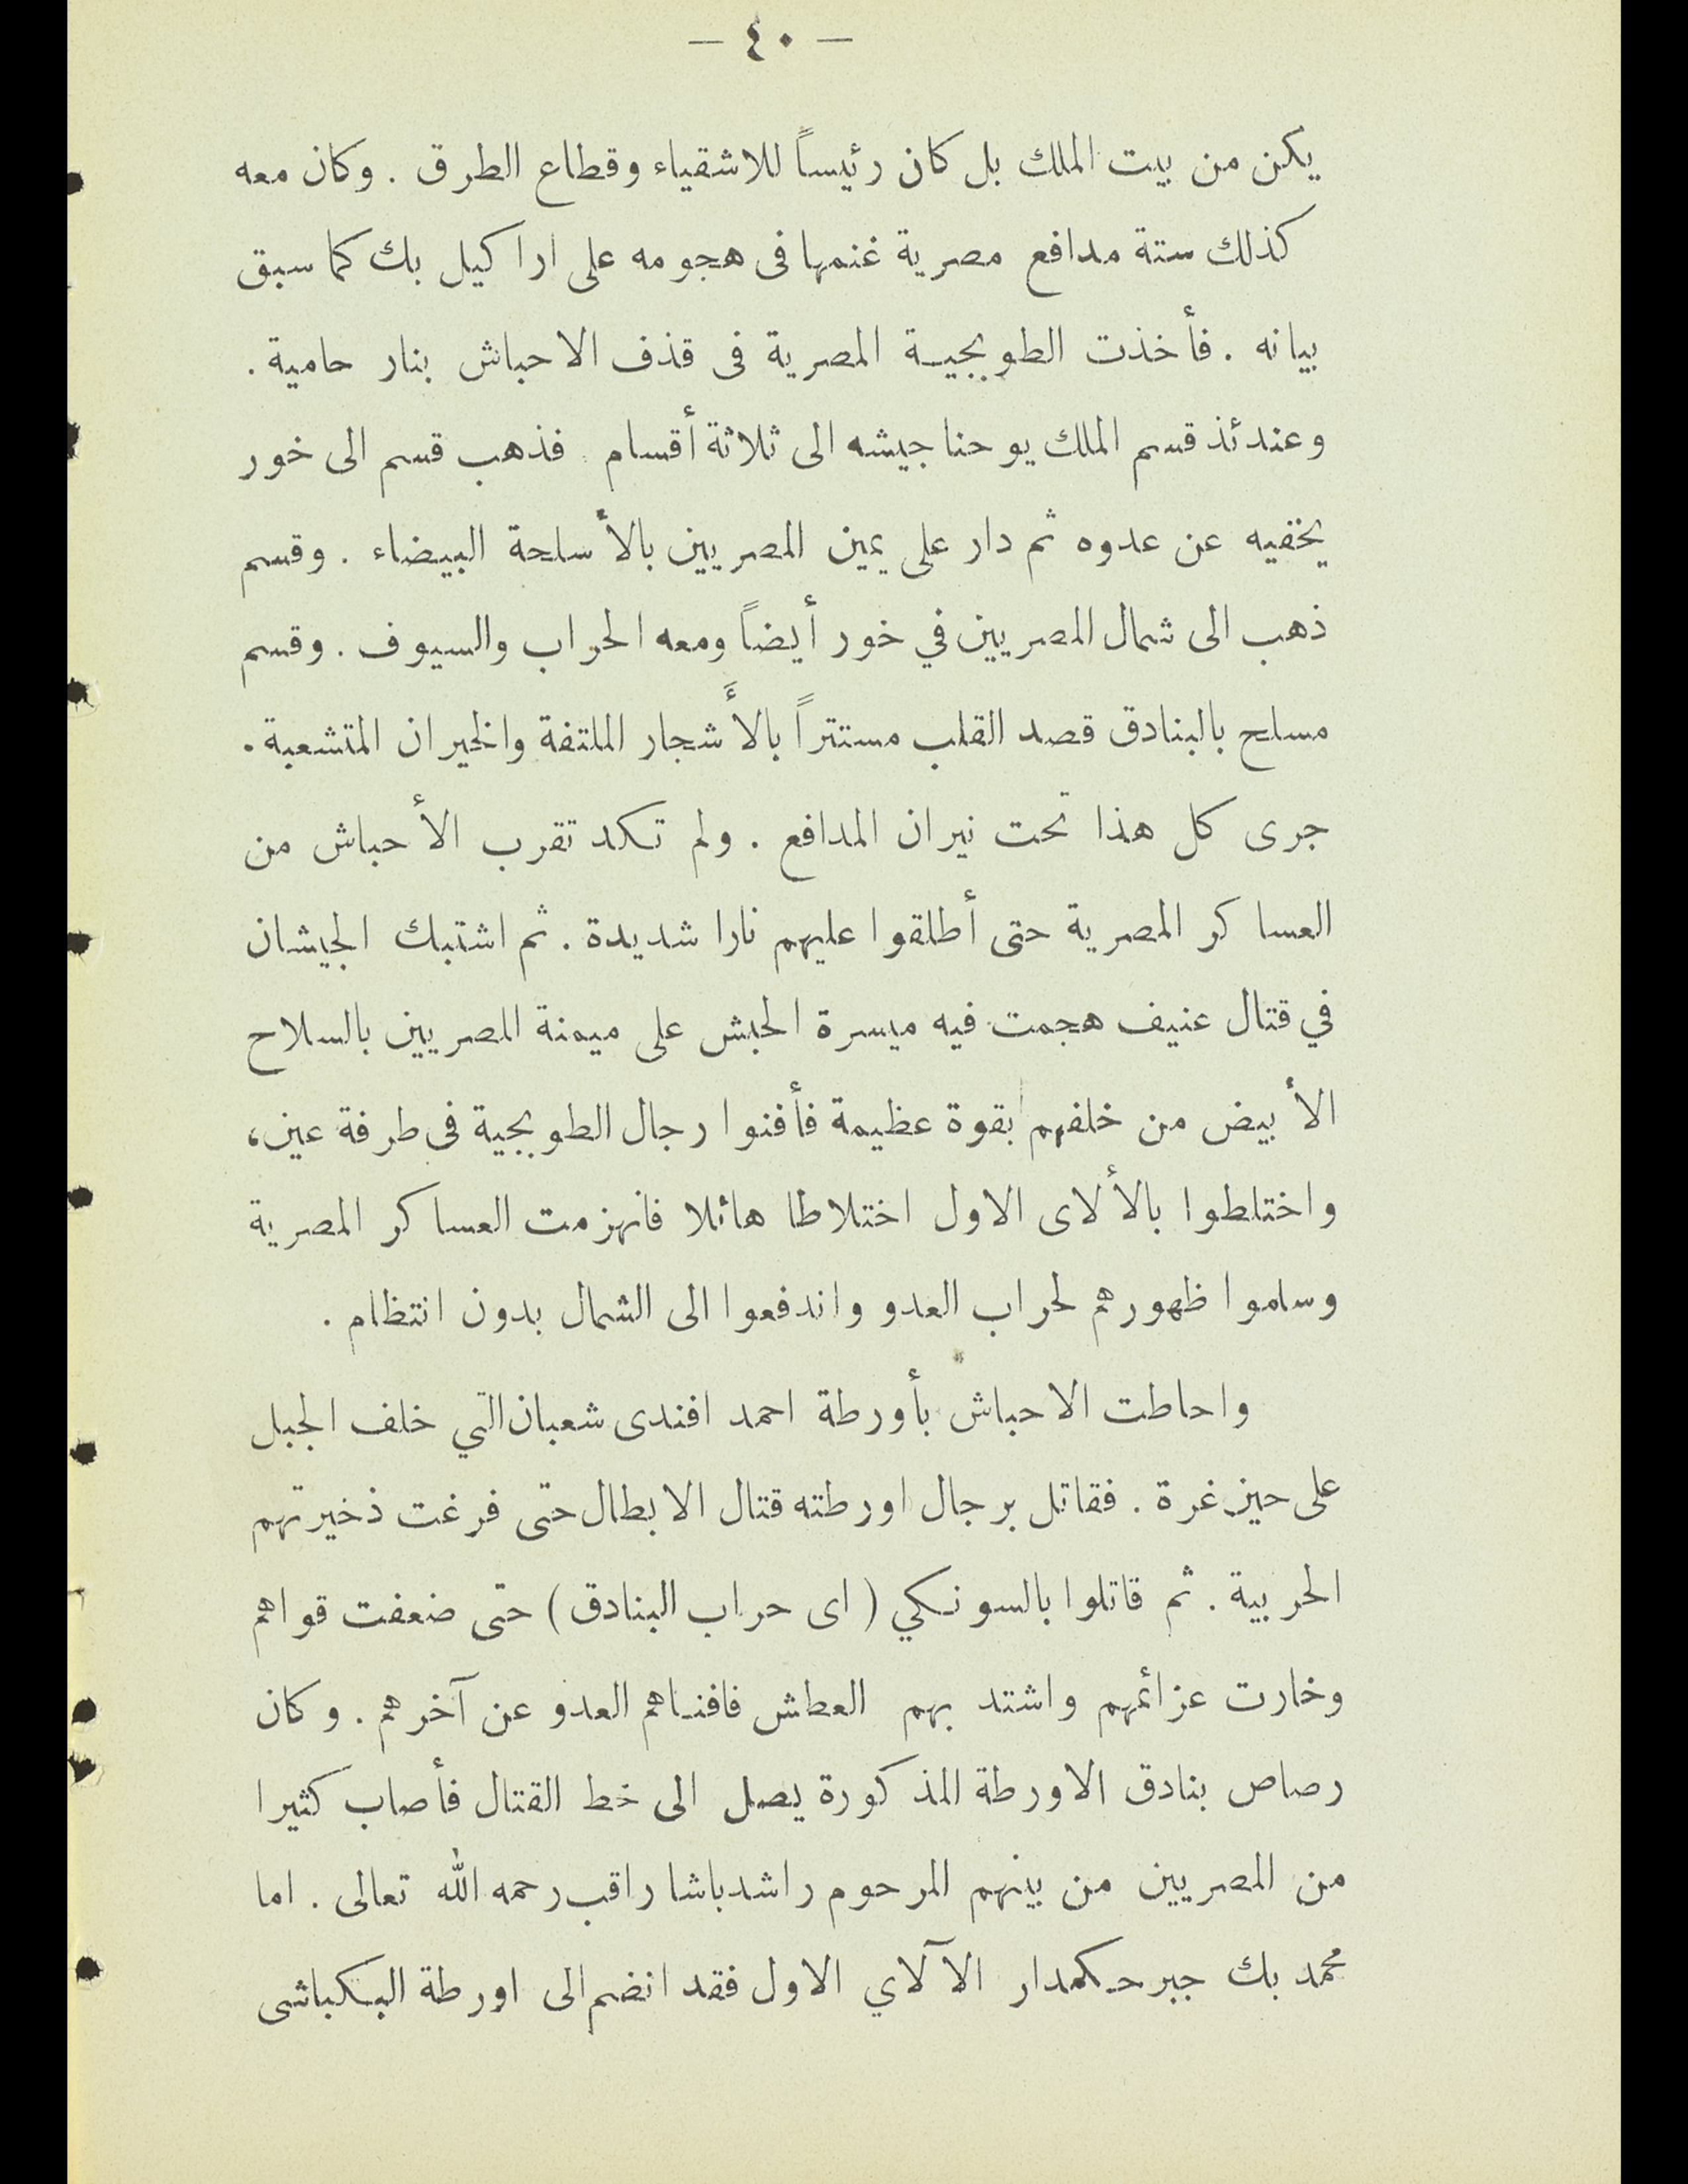 — ٤٠ —
يكن من بيت الملك بل كان رئيساً للاشقياء وقطاع الطرق . وكان معه
كذلك ستة مدافع مصرية غنمها فى هجومه على اراكيل بك كما سبق
بيانه . فأخذت الطوبجيـة المصرية فى قذف الاحباش بنار حامية .
وعندئذ قسم الملك يوحنا جيشه الى ثلاثة أقسام فذهب قسم الى خور
يخفيه عن عدوه ثم دار على يمين المصريين بالأسلحة البيضاء . وقسم
ذهب الى شمال المصريين في خور أيضاً ومعه الحراب والسيوف . وقسم
مسلح بالبنادق قصد القلب مستتراً بالأَشجار الملتفة والخيران المتشعبة .
جرى كل هذا تحت نيران المدافع . ولم تكد تقرب الأحباش من
العساكر المصرية حتى أطلقوا عليهم نارا شديدة . ثم اشتبك الجيشان
في قتال عنيف هجمت فيه ميسرة الحبش على ميمنة المصريين بالسلاح
الأبيض من خلفهم بقوة عظيمة فأفنوا رجال الطوبجية فى طرفة عين،
واختلطوا بالألاى الاول اختلاطا هائلا فانهزمت العساكر المصرية
وساموا ظهورهم لحراب العدو واندفعوا الى الشمال بدون انتظام .
واحاطت الاحباش بأورطة احمد افندى شعبان التي خلف الجبل
على حين غرة . فقاتل برجال اورطته قتال الابطال حتى فرغت ذخيرتهم
الحربية . ثم قاتلوا بالسونكي ( اى حراب البنادق ) حتى ضعفت قواهم
وخارت عزائمهم واشتد بهم العطش فافنـاهم العدو عن آخرهم . وكان
رصاص بنادق الاورطة المذكورة يصل الى خط القتال فأصاب كثيرا
من المصريين من بينهم المرحوم راشد باشا راقب رحمه الله تعالى . اما
محمد بك جبر حـكمدار الآلاي الاول فقد انضم الى اورطة البـكباشى